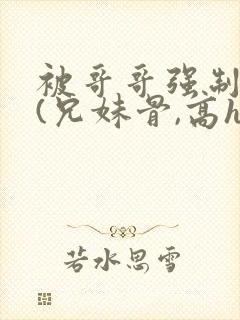 被哥哥强制
(兄妹骨,高h
若水思雪